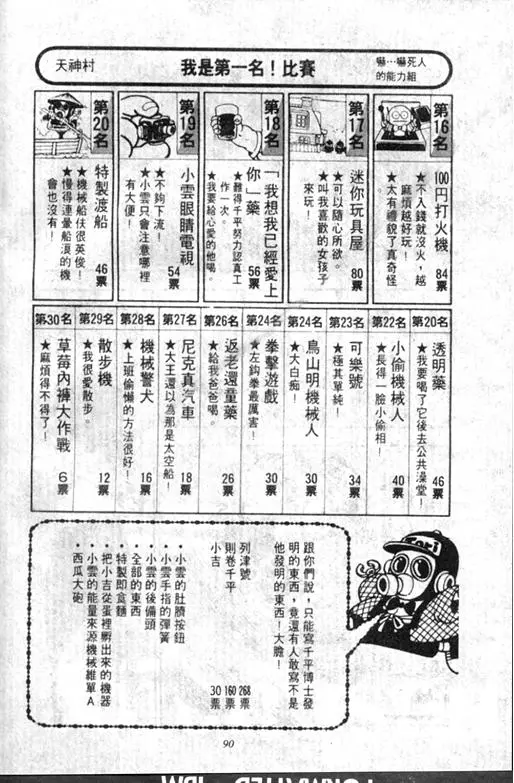 天神村
我是第一名！比賽
嚇…嚇死人
的能力組
第16名
100円打火機
★不入錢就沒火，越
麻煩越好玩！
★太有禮貌了真奇怪
84票
第17名
迷你玩具屋
★可以隨心所欲。
★叫我喜歡的女孩子
來玩！
80票
第18名
「我想我已經愛上
你」藥
★難得千平努力認真工
作一次。
★我要給心愛的他喝。
56票
第19名
小雲眼睛電視
★不夠下流！
★小雲只會注意哪裡
有大便！
54票
第20名
特製渡船
★機械船伕很英俊！
★慢得連暈船浪的機
會也沒有！
46票
第20名
透明藥
★我要喝了它後去公共澡堂！
46票
第22名
小偷機械人
★長得一臉小偷相！
40票
第23名
可樂號
★極其單純！
34票
第24名
鳥山明機械人
★大白痴！
30票
第24名
拳擊遊戲
★左鈎拳最厲害！
30票
第26名
返老還童藥
★給我爸爸喝。
26票
第27名
尼克真汽車
★大王還以為那是太空船！
18票
第28名
機械警犬
★上班偷懶的方法很好！
16票
第29名
散步機
★我很愛散步。
12票
第30名
草莓內褲大作戰
★麻煩得不得了！
6票
跟你們說，只能寫千平博士發
明的東西，竟還有人敢寫不是
他發明的東西！大膽！
列津號 268票
則卷千平 160票
小吉 30票
・小雲的肚臍按鈕
・小雲手指的彈簧
・小雲的後備頭
・全部的東西
・特製即食麵
・把小吉從蛋裡孵出來的機器
・小雲的能量來源機械維單A
・西瓜大砲
90